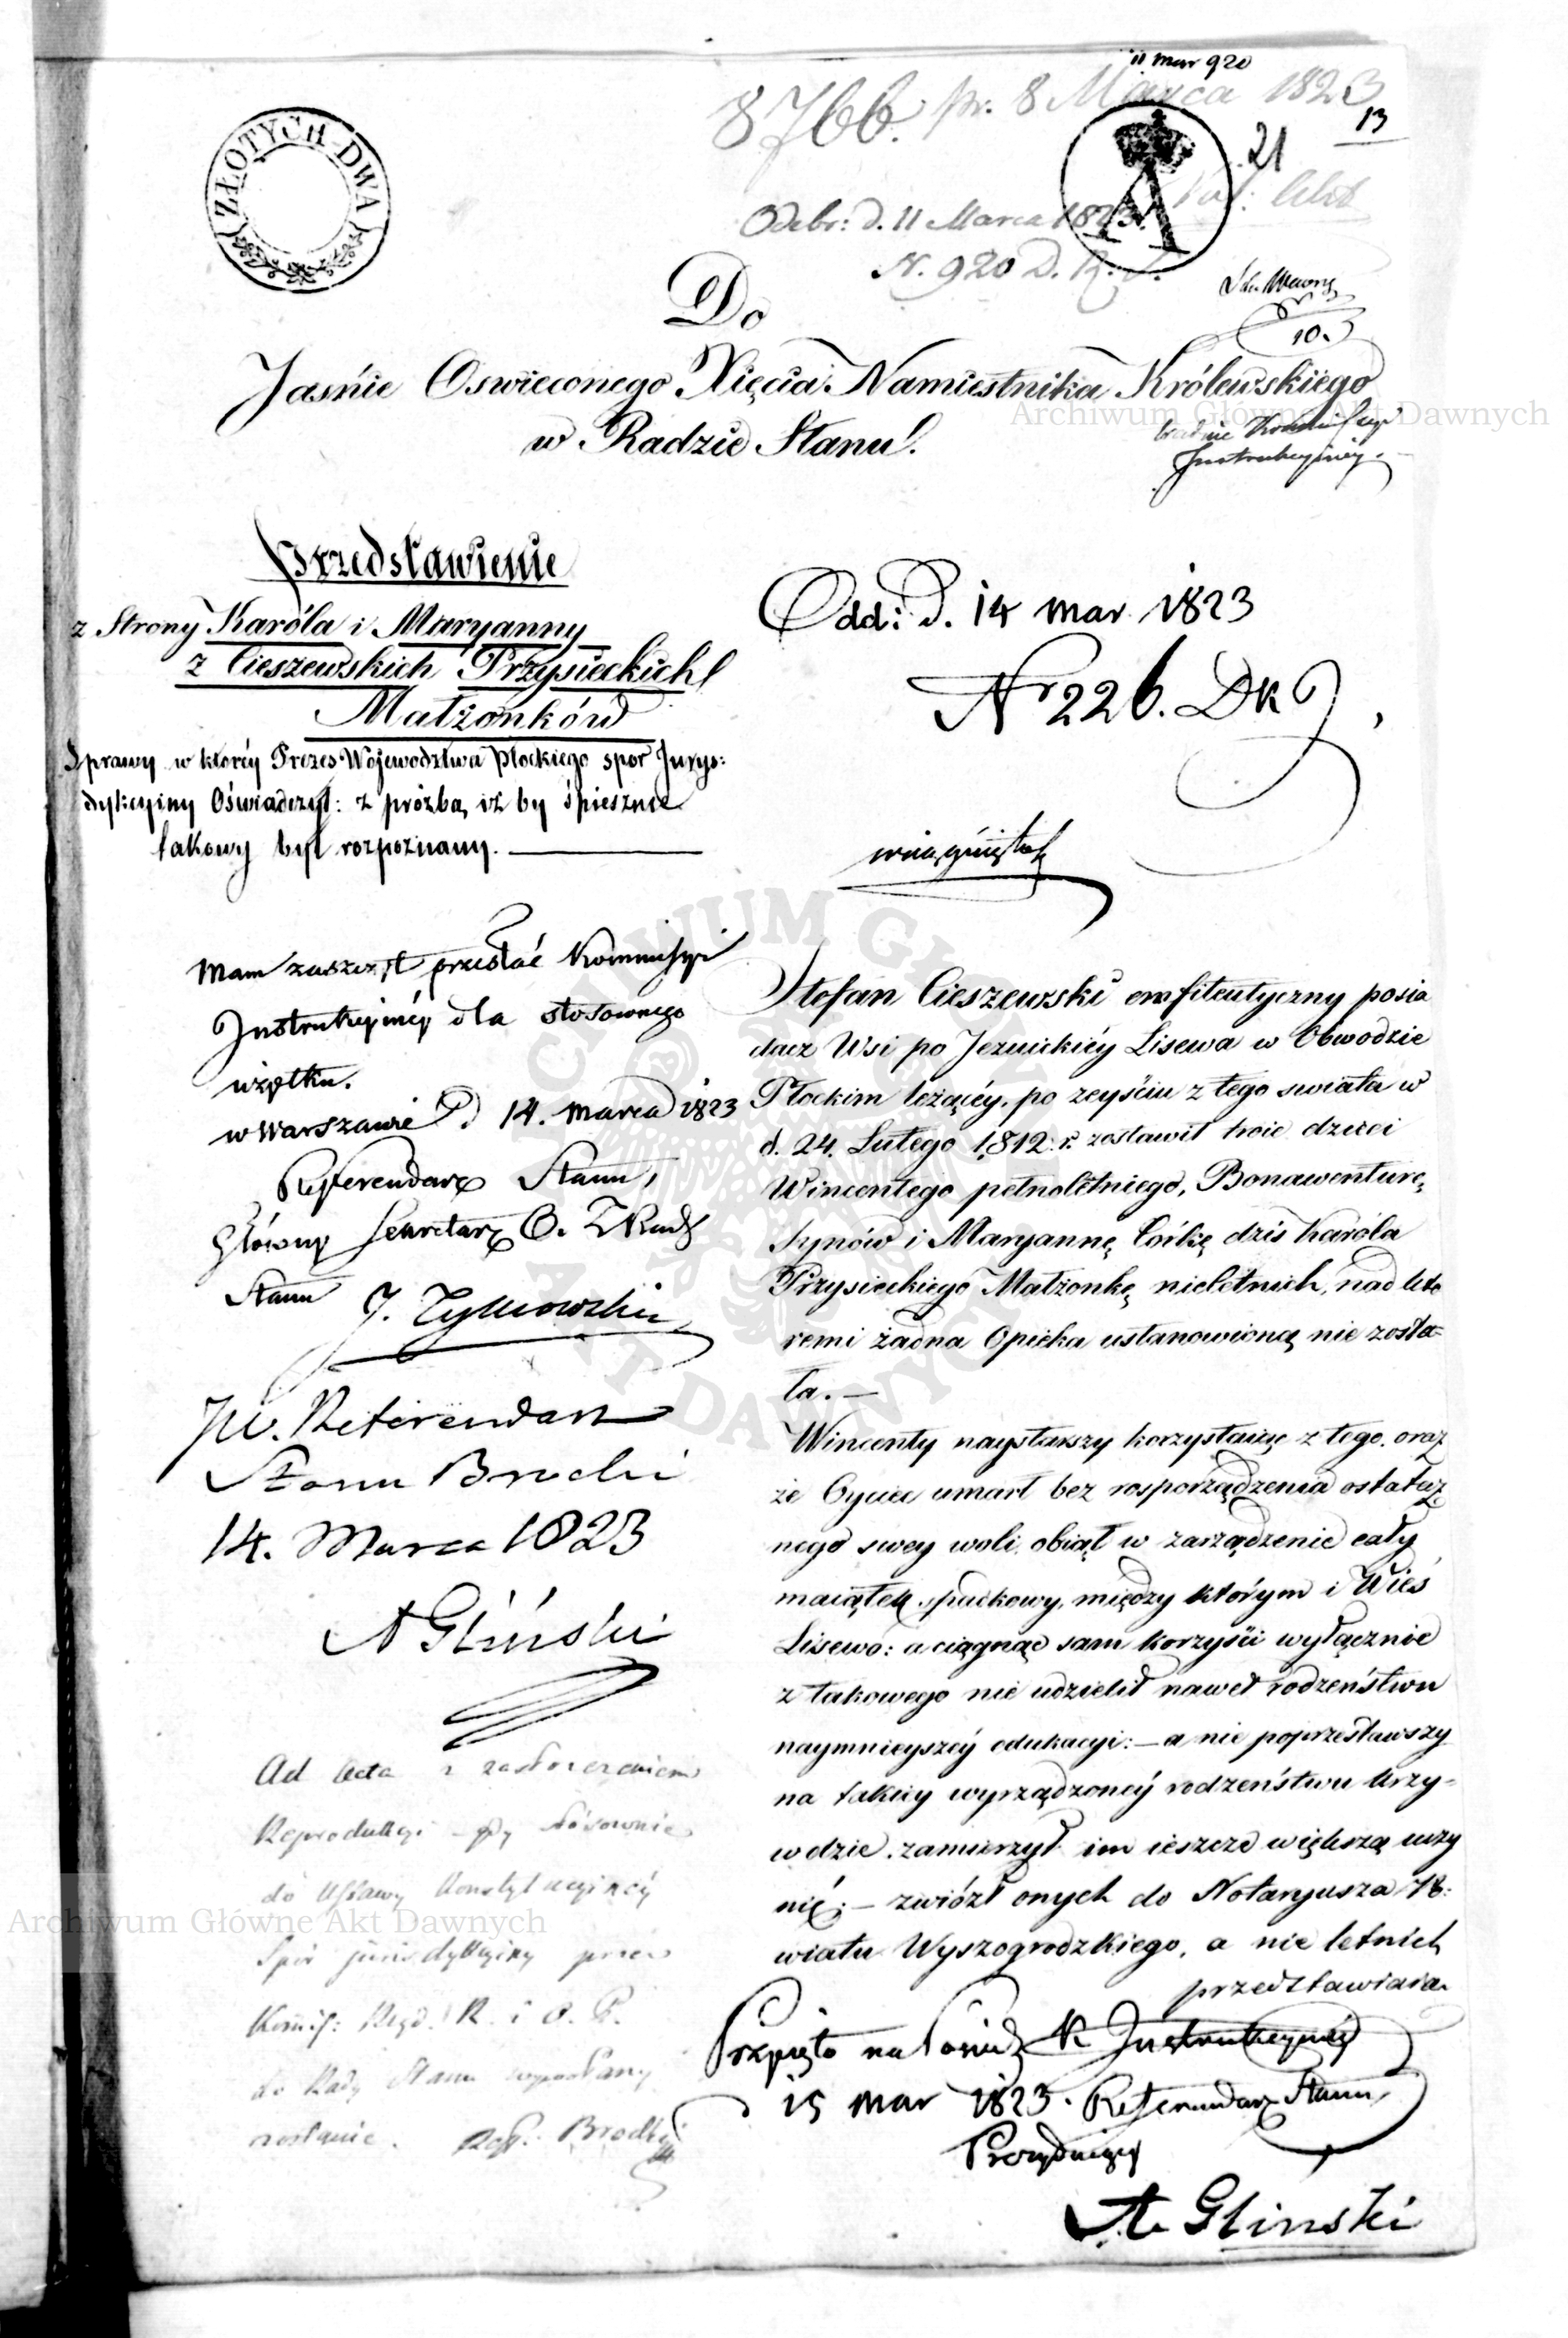 11 mar 920
8766. pr. 8 Marca 1823
13
21
ZŁOTYCH DWA
A
Odebr: d. 11 Marca 1823.
N. 920 D. R. S.
10.
Do
Jaśnie Oswieconego Xięcia Namiestnika Królewskiego
w Radzie Stanu.
Kommissyi
Instrukcyiney.
Przedstawienie
z Strony Karóla i Maryanny
z Cieszewskich Przysieckich
Małżonków
Sprawy w ktorey Prezes Województwa Płockiego spor Jurys:
dykcyiny Oświadczył: z prózbą iż by śpiesznie
takowy był rozpoznany.
Odd: d. 14 mar 1823
Nr 226. DK
wciągnięta
Mam zaszczyt przesłać Kommissyi
Instrukcyiney dla stosownego
użytku.
w Warszawie d 14. marca 1823
Referendarz Stanu,
Główny Sekretarz O. Z Rady
Stanu J. Tymowski
JW. Referendarz
Stanu Brocki
14. Marca 1823
A Gliński
Ad acta z zastrzeżeniem
Reprodukcyi gdy stósownie
do Ustawy Konstytucyiney
Spór jurisdykcyiny przez
Kommiss: Rząd. W. i O. P.
do Rady Stanu wywołany
zostanie. Ref: Brocki
Stefan Cieszewski emfiteutyczny posia
dacz Wsi po Jezuickiéy Lisewa w Obwodzie
Płockim leżącéy, po zeyściu z tego swiata w
d. 24. Lutego 1812. r. zostawił troie dzieci
Wincentego pełnoletniego, Bonawenturę
Synów i Maryannę Córkę dziś Karóla
Przysieckiego Małżonkę nieletnich, nad któ
remi żadna Opieka ustanowioną nie zosta=
ła. —
Wincenty naystarszy korzystaiąc z tego, oraz
że Oyciec umarł bez rosporządzenia ostatecz
nego swey woli, obiął w zarządzenie cały
maiątek spadkowy, między którym i Wieś
Lisewo: a ciągnąc sam korzyści wyłącznie
z takowego nie udzielił nawet rodzeństwu
naymnieyszéy edukacyi: — a nie poprzestawszy
na takiey wyrządzonéy rodzeństwu krzy=
wdzie, zamierzył im ieszcze większą uczy
nić: — zwiózł onych do Notaryusza Po:
wiatu Wyszogrodzkiego, a nie letnich
przedstawiaia
Przyięto na Posiedz K Instrukcyiney
15 mar 1823. Referendarz Stanu,
Prezyduiący
A. Gliński
Archiwum Główne Akt Dawnych
Archiwum Główne Akt Dawnych
ARCHIWUM GŁÓWNE AKT DAWNYCH